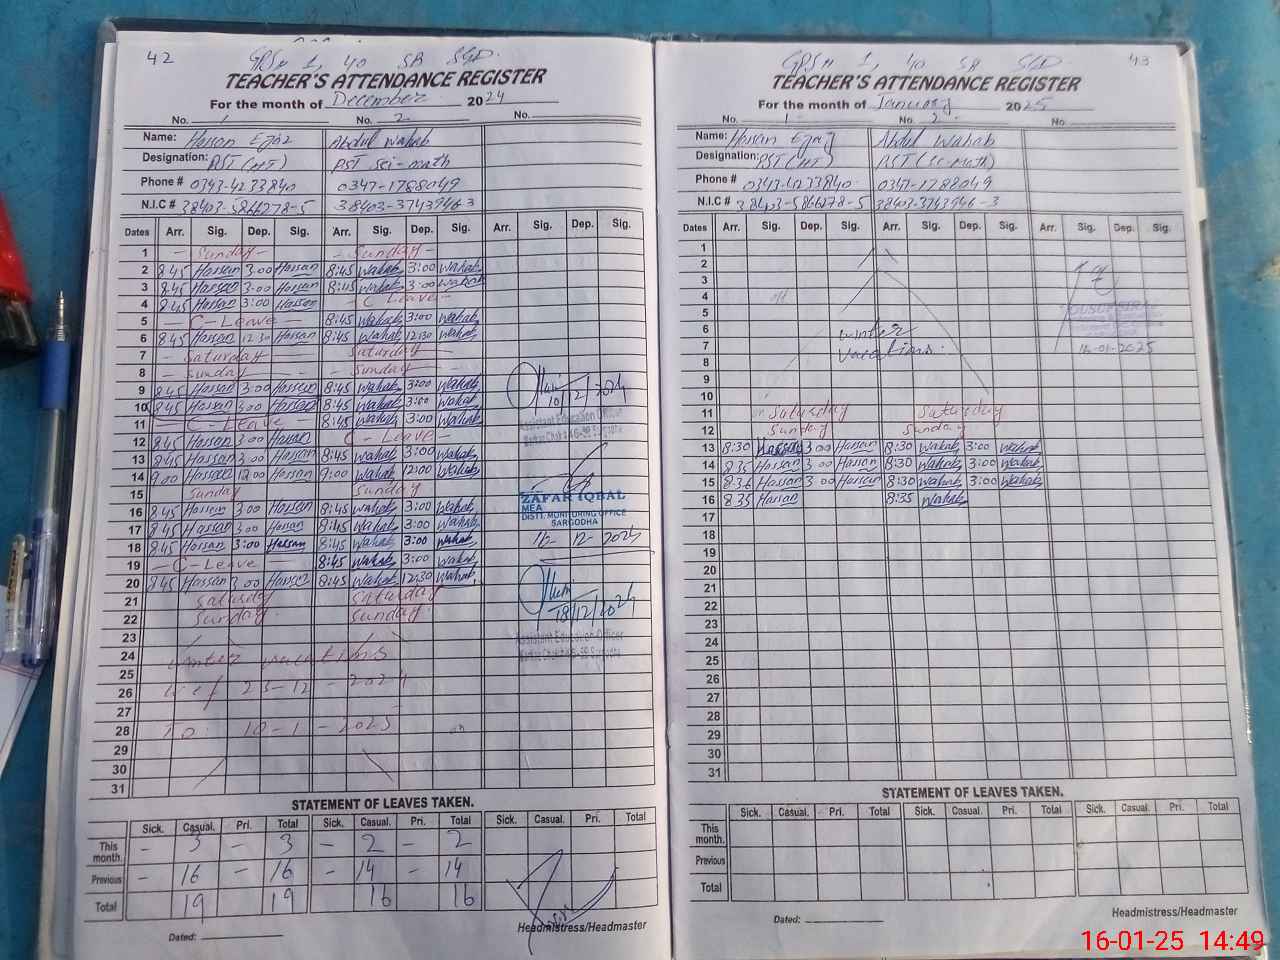 42 GPS# 1, 40 SB SGD.
TEACHER'S ATTENDANCE REGISTER
For the month of December 2024
No. 1 No. 2 No.
Name: Hassan Ejaz Abdul Wahab
Designation: PST(HT) PST Sci-math
Phone # 0343-4233840 0347-1788049
N.I.C # 38403-5866278-5 38403-3743946-3
Dates Arr. Sig. Dep. Sig. Arr. Sig. Dep. Sig. Arr. Sig. Dep. Sig.
1 - Sunday - - Sunday -
2 8:45 Hassan 3:00 Hassan 8:45 Wahab 3:00 Wahab
3 8:45 Hassan 3:00 Hassan 8:45 Wahab 3:00 Wahab
4 8:45 Hassan 3:00 Hassan - C Leave -
5 - C - Leave - 8:45 Wahab 3:00 Wahab
6 8:45 Hassan 12:30 Hassan 8:45 Wahab 12:30 Wahab
7 - Saturday - Saturday -
8 - Sunday - - Sunday -
9 8:45 Hassan 3:00 Hassan 8:45 Wahab 3:00 Wahab
10 8:45 Hassan 3:00 Hassan 8:45 Wahab 3:00 Wahab
10/12/2024
11 - C - Leave - 8:45 Wahab 3:00 Wahab
Assistant Education Officer
12 8:45 Hassan 3:00 Hassan C - Leave -
13 8:45 Hassan 3:00 Hassan 8:45 Wahab 3:00 Wahab
14 9:00 Hassan 12:00 Hassan 9:00 Wahab 12:00 Wahab
15 Sunday Sunday
ZAFAR IQBAL
MEA
DISTT. MONITORING OFFICE
SARGODHA
16 8:45 Hassan 3:00 Hassan 8:45 Wahab 3:00 Wahab
17 8:45 Hassan 3:00 Hassan 8:45 Wahab 3:00 Wahab
18 8:45 Hassan 3:00 Hassan 8:45 Wahab 3:00 Wahab
12 - 2024
19 - C - Leave - 8:45 Wahab 3:00 Wahab
20 8:45 Hassan 3:00 Hassan 8:45 Wahab 12:30 Wahab
21 Saturday Saturday
22 Sunday Sunday
18/12/2024
23
Assistant Education Officer
24 Winter vacations
25
26 w.e.f 23-12-2024
27
28 To: 10-1-2025
29
30
31
STATEMENT OF LEAVES TAKEN.
Sick. Casual. Pri. Total Sick. Casual. Pri. Total Sick. Casual. Pri. Total
This month. - 3 - 3 - 2 - 2
Previous - 16 - 16 - 14 - 14
Total 19 19 16 16
Dated: Headmistress/Headmaster
GPS# 1, 40 SB SGD. 43
TEACHER'S ATTENDANCE REGISTER
For the month of January 2025
No. 1 No. 2 No.
Name: Hassan Ejaz Abdul Wahab
Designation: PST(HT) PST(Sc-Math)
Phone # 0343-4233840 0347-1788049
N.I.C # 38403-5866278-5 38403-3743946-3
Dates Arr. Sig. Dep. Sig. Arr. Sig. Dep. Sig. Arr. Sig. Dep. Sig.
1
2
3
4
5
6 winter
7 vacations.
16-01-2025
8
9
10
11 Saturday Saturday
12 Sunday Sunday
13 8:30 Hassan 3:00 Hassan 8:30 Wahab 3:00 Wahab
14 8:35 Hassan 3:00 Hassan 8:30 Wahab 3:00 Wahab
15 8:36 Hassan 3:00 Hassan 8:30 Wahab 3:00 Wahab
16 8:35 Hassan 8:35 Wahab
17
18
19
20
21
22
23
24
25
26
27
28
29
30
31
STATEMENT OF LEAVES TAKEN.
Sick. Casual. Pri. Total Sick. Casual. Pri. Total Sick. Casual. Pri. Total
This month.
Previous
Total
Dated: Headmistress/Headmaster
16-01-25 14:49